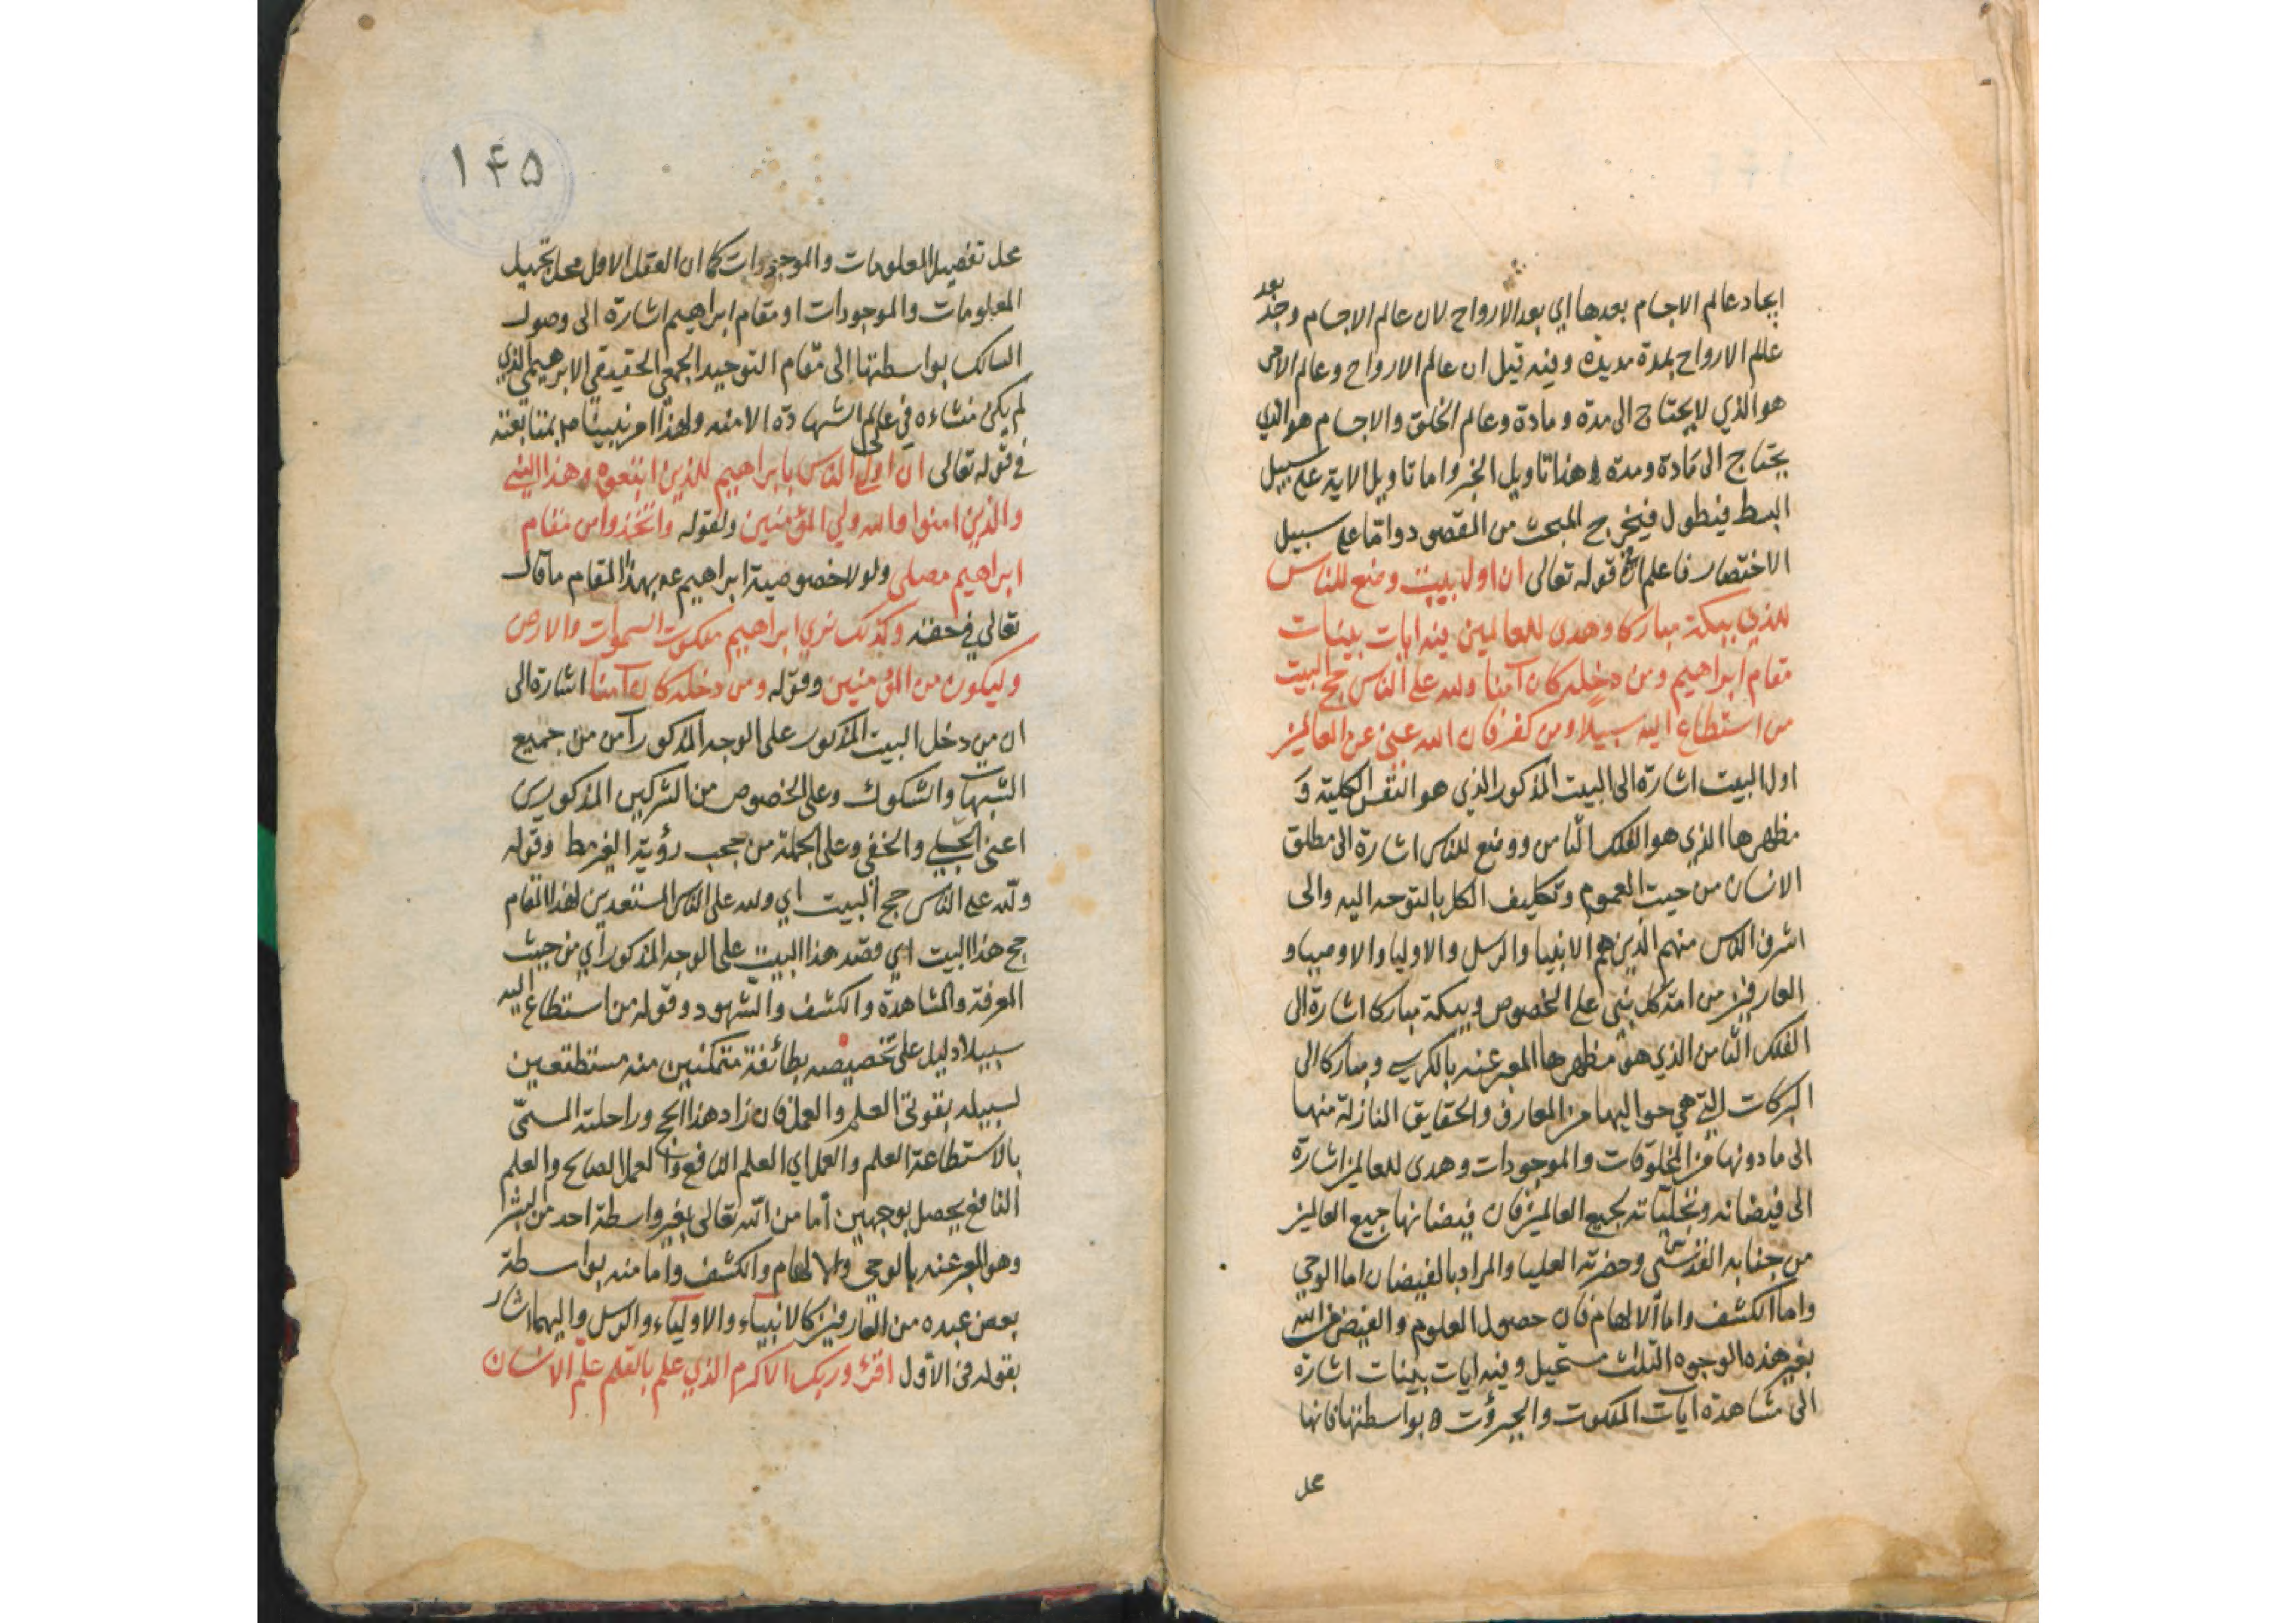 ايجاد عالم الاجسام بعدها اي بعد الارواح لان عالم الاجسام وجد بعد
عالم الارواح بمدة مديدة وفيه قيل ان عالم الارواح وعالم الامر
هو الذي لا يحتاج الى مدة ومادة وعالم الخلق والاجسام هو الذي
يحتاج الى مادة ومدة هذا تاويل الخبر واما تاويل الاية على سبيل
البسط فيطول فيخرج المبحث من المقصود واما على سبيل
الاختصار فاعلم ان قوله تعالى ان اول بيت وضع للناس
للذي ببكة مباركا وهدى للعالمين فيه ايات بينات
مقام ابراهيم ومن دخله كان آمنا ولله على الناس حج البيت
من استطاع اليه سبيلا ومن كفر فان الله غني عن العالمين
اول البيت اشارة الى البيت المذكور الذي هو النفس الكلية و
مظهرها الذي هو الفلك الثامن ووضع للناس اشارة الى مطلق
الانسان من حيث العموم وتكليف الكل بالتوجه اليه والى
اشرف الناس منهم الذين هم الانبيا والرسل والاوليا والاوصيا و
العارفين من امة كل نبي على الخصوص وببكة مباركا اشارة الى
الفلك الثامن الذي هو مظهرها المعبر عنه بالكرسي ومباركا الى
البركات التي هي حواليها من المعارف والحقايق النازلة منها
الى ما دونها من المخلوقات والموجودات وهدى للعالمين اشارة
الى فيضانه وتجلياته لجميع العالمين فان فيضانها جميع العالمين
من جنابه القدسي وحضرته العليا والمراد بالفيضان اما الوحي
واما الكشف واما الالهام فان حصول العلوم والفيض من الله
بغير هذه الوجوه الثلث مستحيل وفيه ايات بينات اشارة
الى مشاهدة آيات الملكوت والجبروت بواسطتها فانها
محل
١۴۵
محل تفصيل المعلومات والموجودات كما ان العقل الاول محل تجميل
المعلومات والموجودات او مقام ابراهيم اشارة الى وصول
السالك بواسطتها الى مقام التوحيد الجمعي الحقيقي الابرهيمي الذي
لم يكن منشاءه في عالم الشهادة الا منه ولهذا امر نبينا صلم بمتابعته
في قوله تعالى ان اولى الناس بابراهيم للذين اتبعوه وهذا النبي
والذين امنوا والله ولي المؤمنين ولقوله واتخذوا من مقام
ابراهيم مصلى ولولا خصوصية ابراهيم عم بهذا المقام ما قال
تعالى في حقه وكذلك نري ابراهيم ملكوت السموات والارض
وليكون من المؤمنين وقوله ومن دخله كان آمنا اشارة الى
ان من دخل البيت المذكور على الوجه المذكور آمن من جميع
الشبهات والشكوك وعلى الخصوص من الشركين المذكورين
اعني الجلي والخفي وعلى الجملة من حجب رؤية الغير مط وقوله
ولله على الناس حج البيت اي ولله على الناس المستعدين لهذا المقام
حج هذا البيت اي قصد هذا البيت على الوجه المذكور اي من حيث
المعرفة والمشاهدة والكشف والشهود وقوله من استطاع اليه
سبيلا دليل على تخصيصه بطائفة متمكنين منه مستطتعين
لسبيله بقوتي العلم والعمل فان زاد هذا الحج وراحلته المسمى
بالاستطاعة العلم والعمل اي العلم النافع والعمل الصالح والعلم
النافع يحصل بوجهين اما من الله تعالى بغير واسطة احد من البشر
وهو المعبر عنه بالوحي والالهام والكشف واما منه بواسطة
بعض عبده من العارفين كالانبياء والاولياء والرسل واليهما اشار
بقوله في الاول اقرء وربك الاكرم الذي علم بالقلم علم الانسان